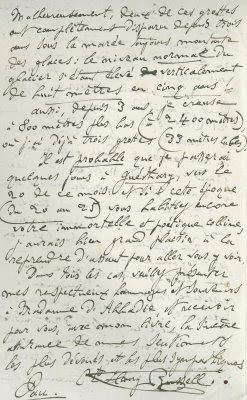 Malheureusement, deux de ces grottes
ont complètement disparu depuis trois
ans sous la marée toujours montante
des glaces: le niveau normal du
glacier s'étant élevé verticalement
de huit mètres en cinq ans!
aussi, depuis 3 ans, je creuse
à 800 mètres plus bas (à 2400 mètres)
où j'ai déjà trois grottes
Il est probable que je passerai
quelques jours à vers le
20 de ce mois: et si à cette époque
(du 20 au 25) vous habitez encore
votre immortelle et poétique colline,
j'aurais bien grand plaisir à la
reprendre d'assaut pour aller vous y voir.
Dans tous les cas, veuillez présenter
mes respectueux hommages et souvenirs
à Madame d'Abbadie et recevoir
pour vous, avec mon livre, la sincère
assurance de mes sentiments
les plus dévoués et les plus sympathiques
Cte Henry Russell.
Pau.